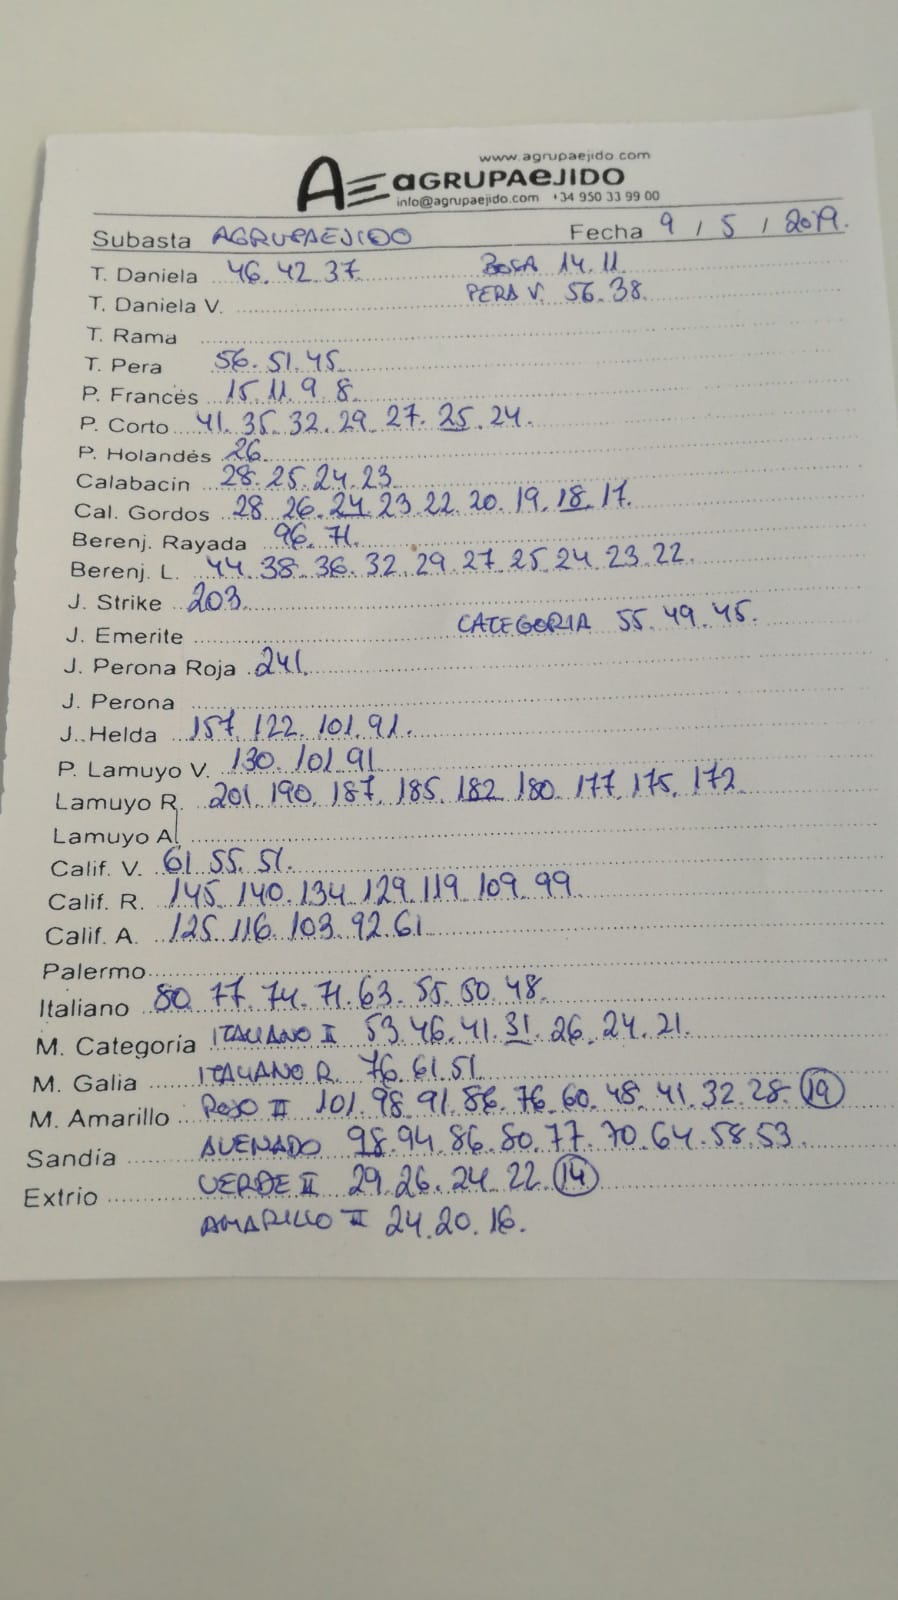 www.agrupaejido.com
AE aGRUPAeJIDO
info@agrupaejido.com +34 950 33 99 00
Subasta AGRUPAEJIDO Fecha 9 / 5 / 2019.
T. Daniela 46. 42. 37. BOSA 14. 11.
T. Daniela V. PERA V. 56. 38.
T. Rama
T. Pera 56. 51. 45.
P. Francés 15. 11. 9. 8.
P. Corto 41. 35. 32. 29. 27. 25. 24.
P. Holandés 26.
Calabacín 28. 25. 24. 23.
Cal. Gordos 28. 26. 24. 23. 22. 20. 19. 18. 17.
Berenj. Rayada 96. 71.
Berenj. L. 44. 38. 36. 32. 29. 27. 25. 24. 23. 22.
J. Strike 203.
J. Emerite CATEGORIA 55. 49. 45.
J. Perona Roja 241.
J. Perona
J. Helda 157. 122. 101. 91.
P. Lamuyo V. 130. 101. 91.
Lamuyo R. 201. 190. 187. 185. 182. 180. 177. 175. 172.
Lamuyo A.
Calif. V. 61. 55. 51.
Calif. R. 145. 140. 134. 129. 119. 109. 99.
Calif. A. 125. 116. 103. 92. 61.
Palermo
Italiano 80. 77. 74. 71. 63. 55. 50. 48.
M. Categoría ITALIANO II 53. 46. 41. 31. 26. 24. 21.
M. Galia ITALIANO R. 76. 61. 51.
M. Amarillo ROJO II 101. 98. 91. 86. 76. 60. 48. 41. 32. 28. 19
Sandía AVENADO 98. 94. 86. 80. 77. 70. 64. 58. 53.
Extrio VERDE II 29. 26. 24. 22. 14
AMARILLO II 24. 20. 16.